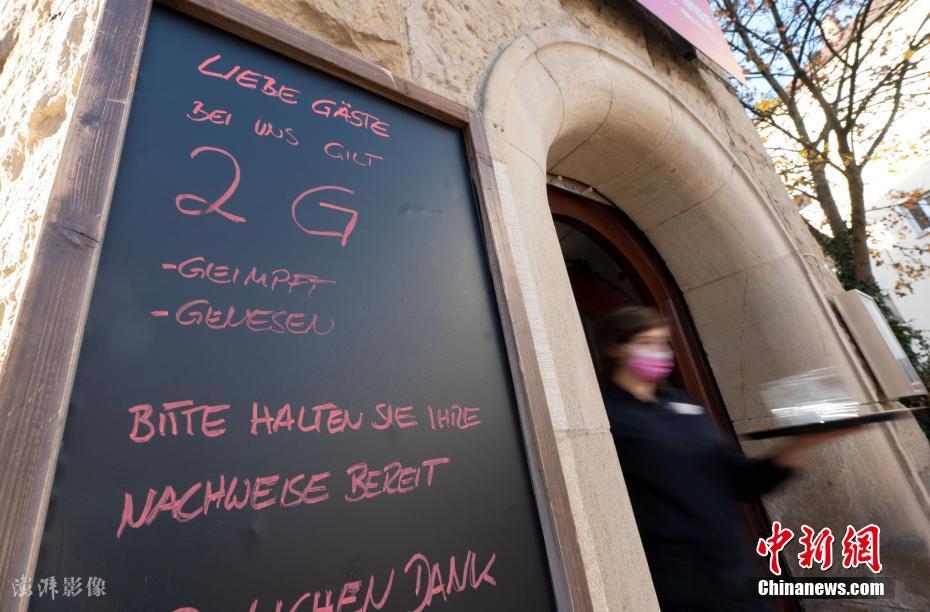 LIEBE GÄSTE
BEI UNS GILT
2 G
-GEIMPFT
-GENESEN
BITTE HALTEN SIE IHRE
NACHWEISE BEREIT
DANK
澎湃影像
中新网
Chinanews.com